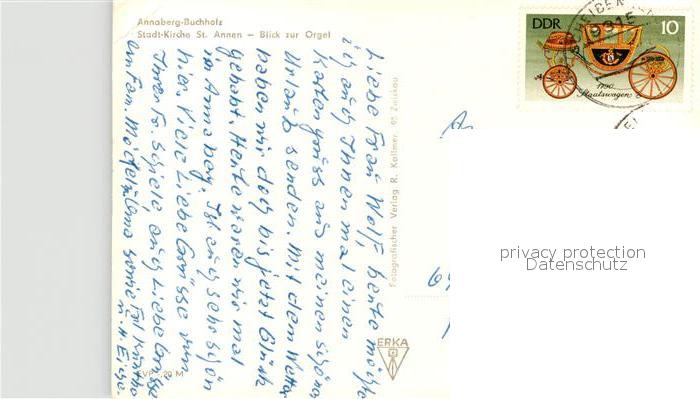 Annaberg-Buchholz
Stadt-Kirche St. Annen – Blick zur Orgel
Liebe Frau Wolf, heute möchte
ich auch Ihnen mal einen
Kartengruß aus meinen schönen
Urlaub senden. Mit dem Wetter
haben wir doch bis jetzt Glück
gehabt. Heute waren wir mal
in Annabg. Ist auch sehr schön
hier. Viele Liebe Grüsse von
Ihrer Fr. auch Liebe Grüsse
sowie Frl.
u. H.
EVP -,20 M
Fotografischer Verlag R. Kallmer, 95 Zwickau
ERKA
DDR
10
1790
Staatswagen
9315
privacy protection
Datenschutz